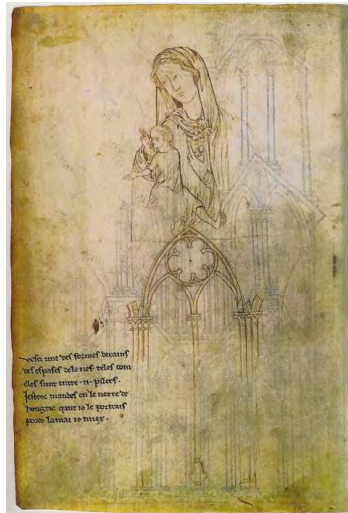 vesci une des formes derains
des espases dele nef teles com
eles sunt entre .ii. pilers.
Jestoie mandes en le tierre de
hongrie qant io le portrais
porco lamai io miex.